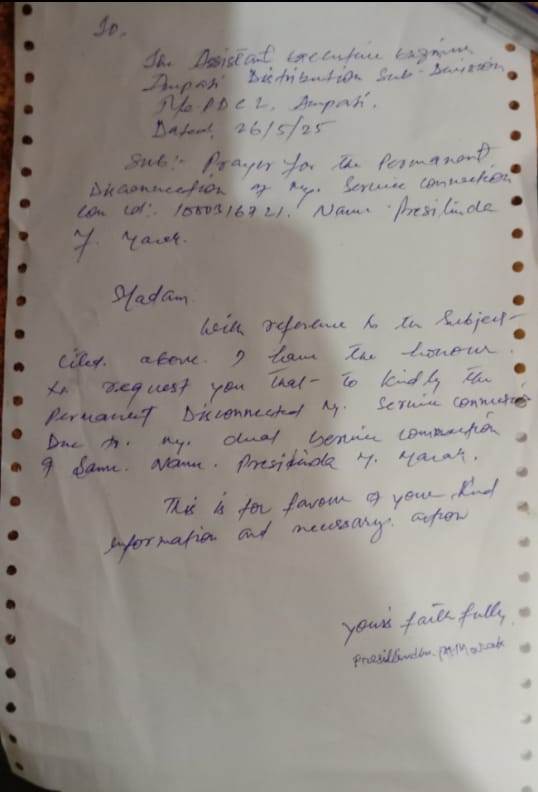 To,
The Assistant Executive Engineer
Ampati Distribution Sub-Division
MePDCL, Ampati.
Dated, 26/5/25
Sub:- Prayer for the Permanent
Disconnection of my. Service connection
Con Id:. Name Presilinda
M. Marak.
Madam
With reference to the Subject-
cited. above. I have the honour.
to request you that- to kindly the
Permanent Disconnected my. Service connection
Due to. my. dual service connection
of Same. Name. Presilinda M. Marak.
This is for favour of your kind
information and necessary. action
your's faithfully,